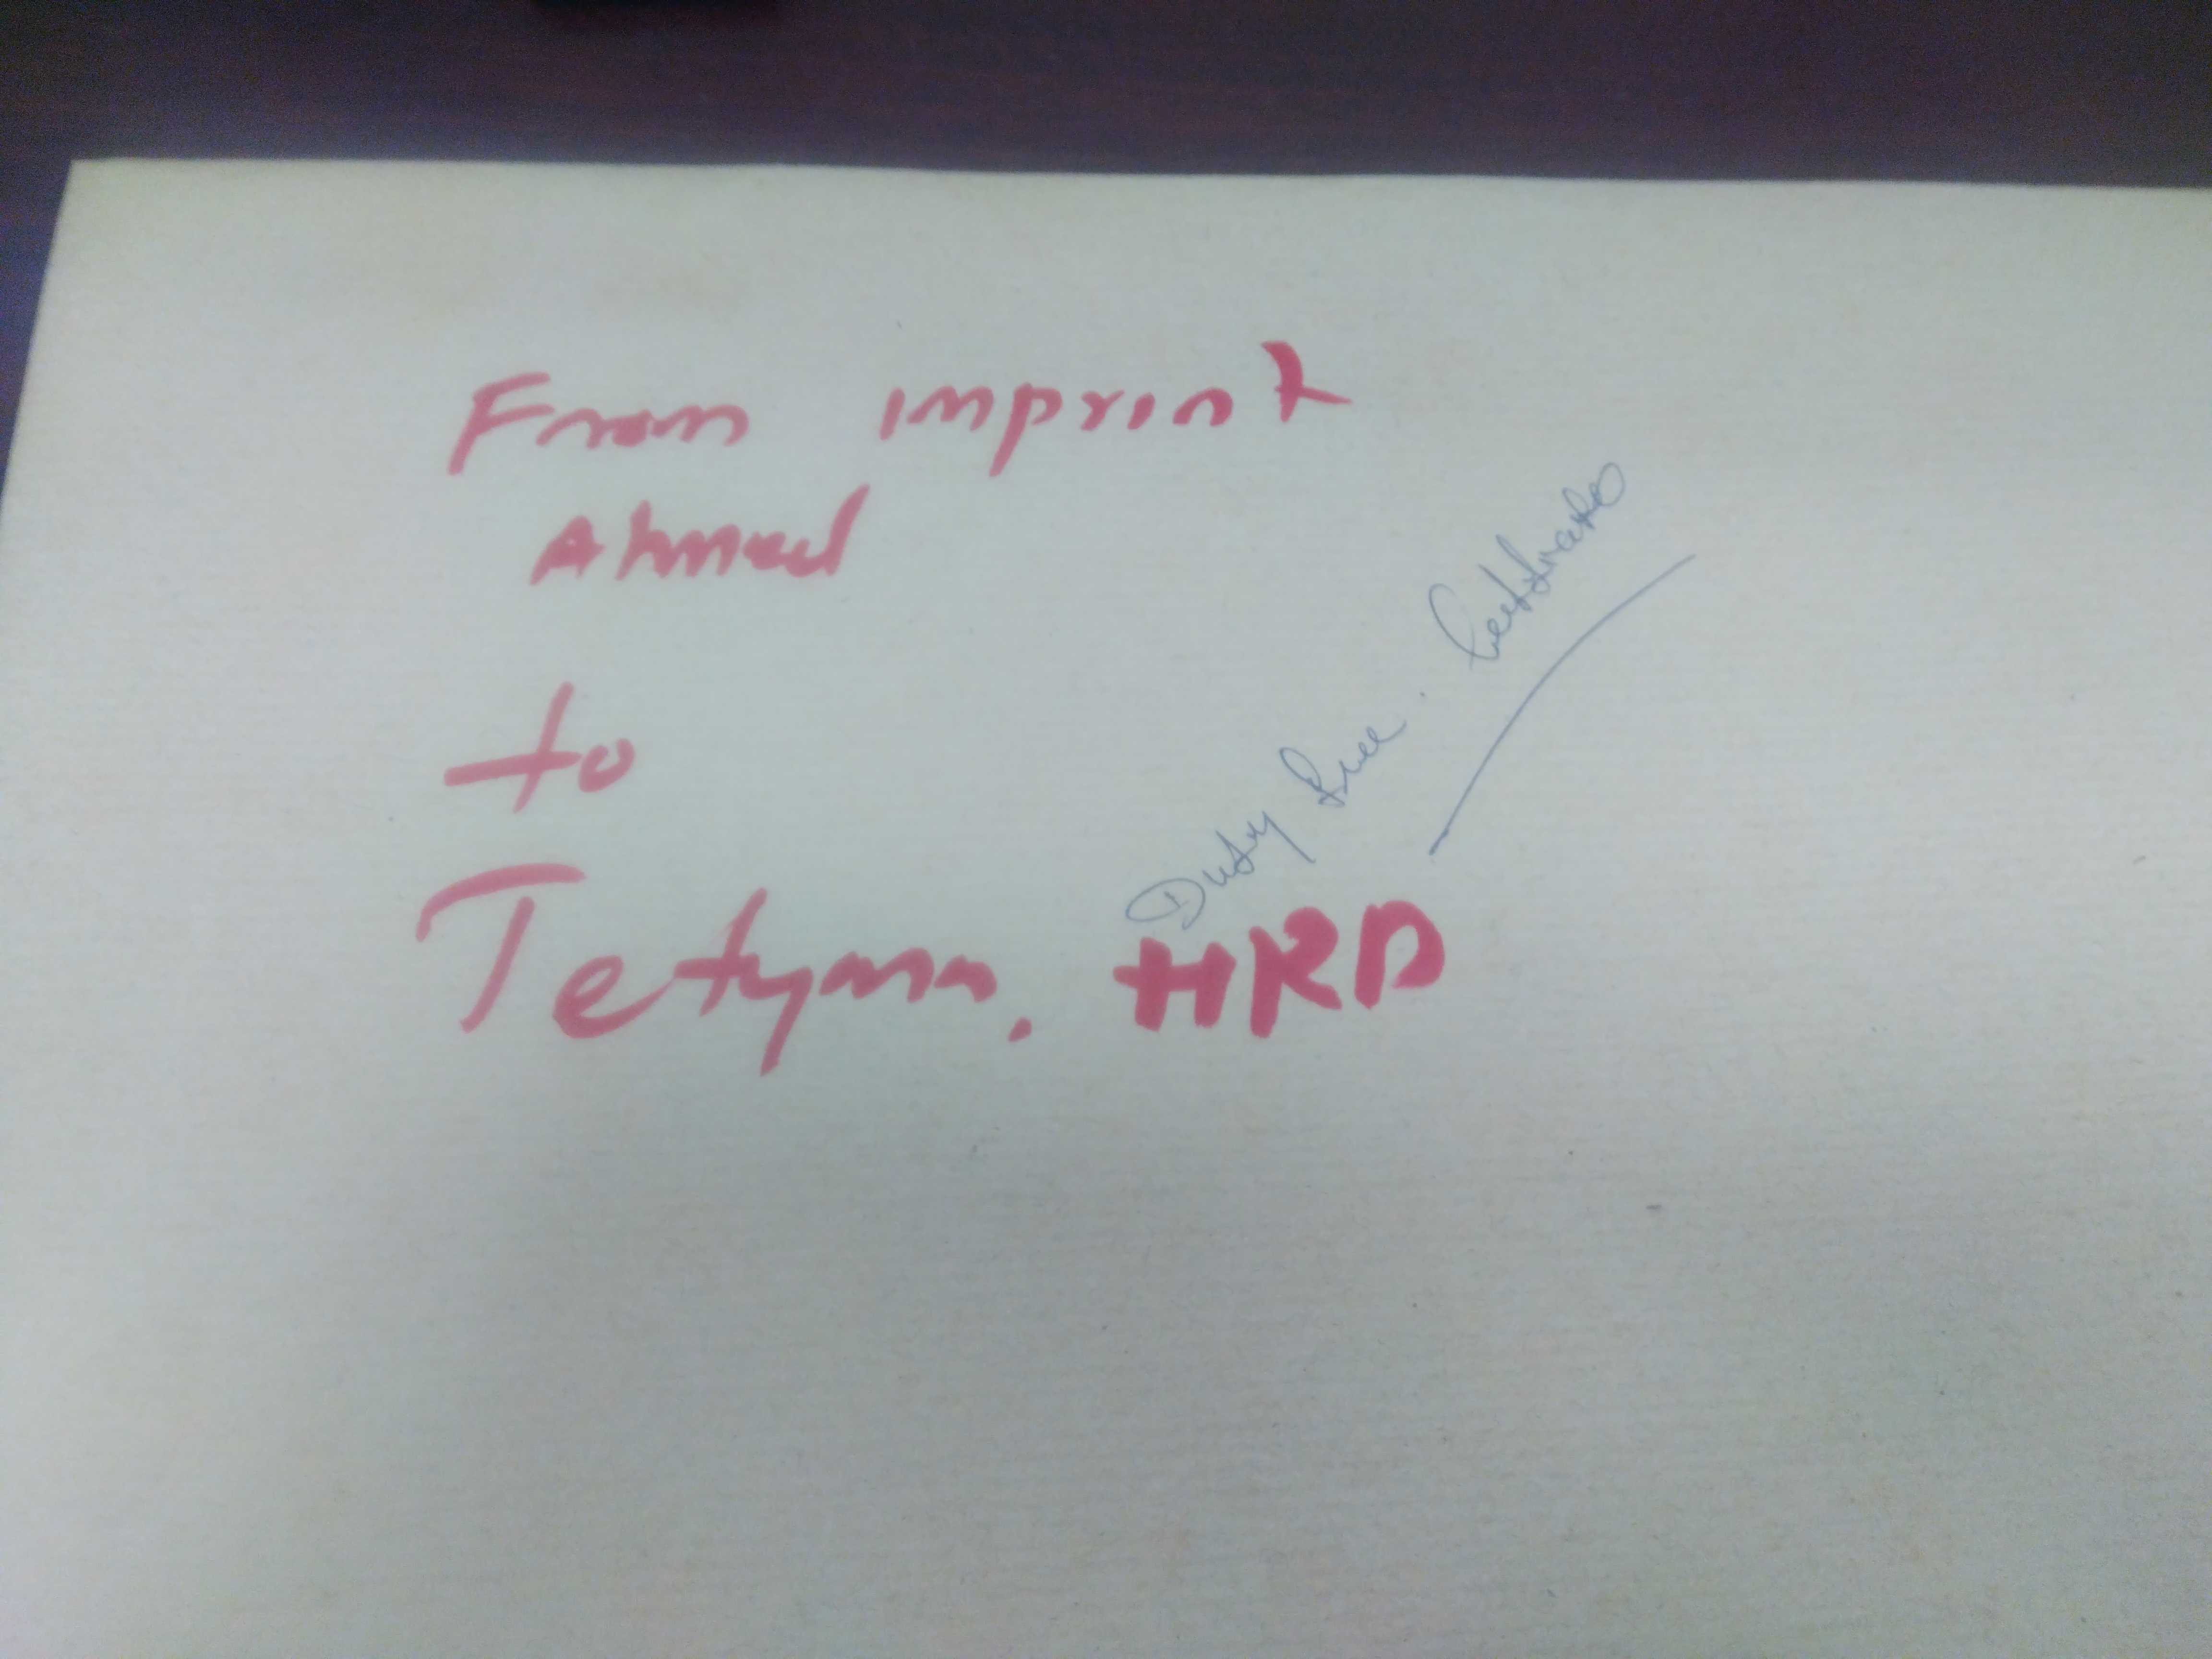 From imprint
Ahmed
to
Tetyana. HRD
Duty free. Certificate